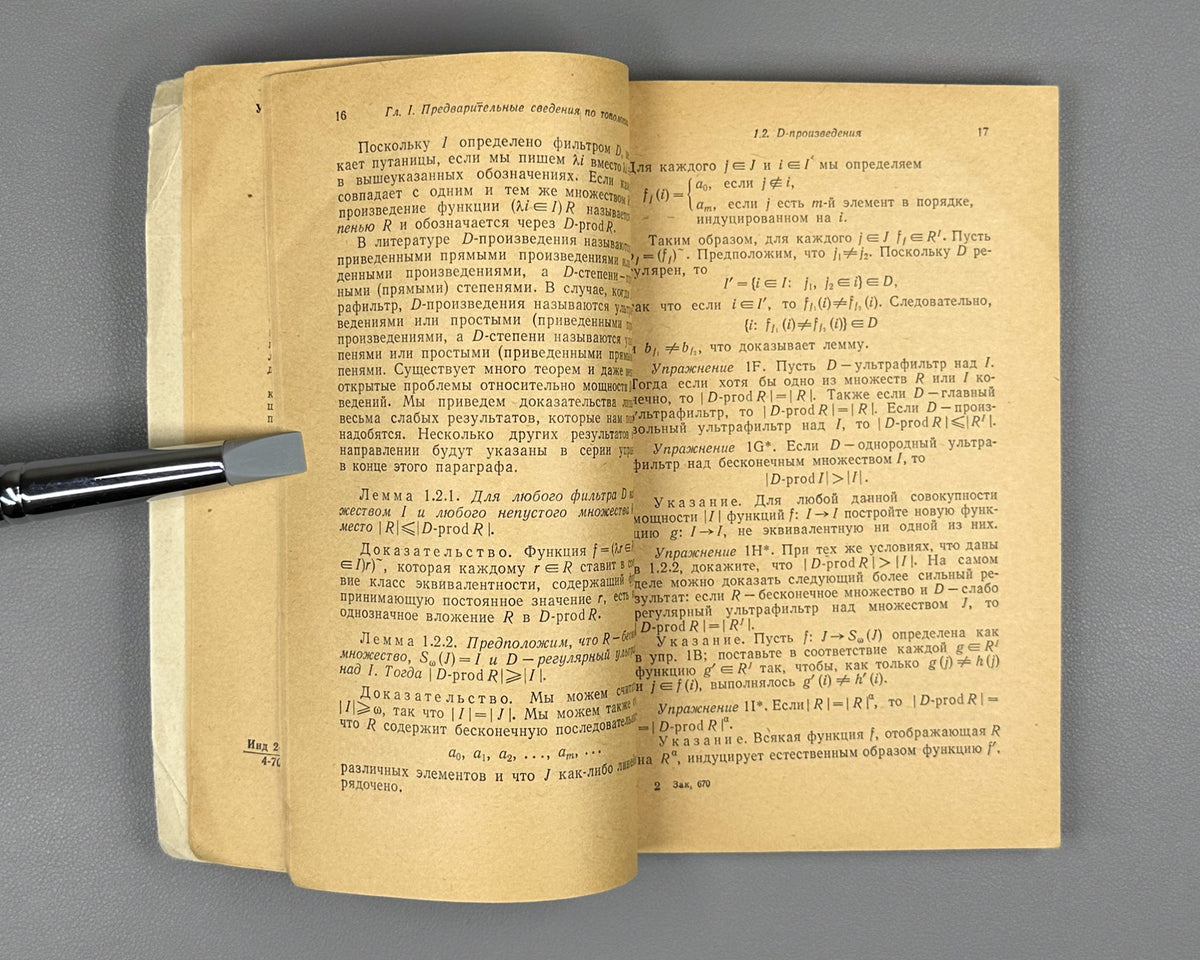 16
Гл. I. Предварительные сведения по
Поскольку I определено фильтром D,
кает путаницы, если мы пишем λi вместо
в вышеуказанных обозначениях. Если
совпадает с одним и тем же множеством
произведение функции (λi∈I)R
пенью R и обозначается через D-prod R.
В литературе D-произведения
приведенными прямыми произведениями
денными произведениями, а D-степени—
ными (прямыми) степенями. В случае, когда
рафильтр, D-произведения называются
ведениями или простыми (приведенными
произведениями, а D-степени называются
пенями или простыми (приведенными
пенями. Существует много теорем и даже
открытые проблемы относительно мощности
ведений. Мы приведем доказательства
весьма слабых результатов, которые нам
надобятся. Несколько других результатов
направлении будут указаны в серии
в конце этого параграфа.
Лемма 1.2.1. Для любого фильтра D
жеством I и любого непустого множества
место |R|⩽|D-prod R|.
Доказательство. Функция f=(λr∈
∈I)r)~, которая каждому r∈R ставит в
вие класс эквивалентности, содержащий
принимающую постоянное значение r, есть
однозначное вложение R в D-prod R.
Лемма 1.2.2. Предположим, что R—
множество, S_ω(J)=I и D—регулярный
над I. Тогда |D-prod R|⩾|I|.
Доказательство. Мы можем
|I|⩾ω, так что |I|=|J|. Мы можем также
что R содержит бесконечную
a₀, a₁, a₂, ..., aₘ, ...
различных элементов и что J как-либо
рядочено.
Инд 2
4-70
1.2. D-произведения
17
Для каждого j∈J и i∈I мы определяем
f_j(i)={a₀, если j∉i,
aₘ, если j есть m-й элемент в порядке,
индуцированном на i.
Таким образом, для каждого j∈J f_j∈R^I. Пусть
=(f_j)~. Предположим, что j₁≠j₂. Поскольку D ре-
гулярен, то
I′={i∈I: j₁, j₂∈i}∈D,
так что если i∈I′, то f_{j₁}(i)≠f_{j₂}(i). Следовательно,
{i: f_{j₁}(i)≠f_{j₂}(i)}∈D
и b_{j₁}≠b_{j₂}, что доказывает лемму.
Упражнение 1F. Пусть D—ультрафильтр над I.
Тогда если хотя бы одно из множеств R или I ко-
нечно, то |D-prod R|=|R|. Также если D—главный
ультрафильтр, то |D-prod R|=|R|. Если D—произ-
вольный ультрафильтр над I, то |D-prod R|⩽|R^I|.
Упражнение 1G*. Если D—однородный ультра-
фильтр над бесконечным множеством I, то
|D-prod I|>|I|.
Указание. Для любой данной совокупности
мощности |I| функций f: I→I постройте новую функ-
цию g: I→I, не эквивалентную ни одной из них.
Упражнение 1H*. При тех же условиях, что даны
в 1.2.2, докажите, что |D-prod R|>|I|. На самом
деле можно доказать следующий более сильный ре-
зультат: если R—бесконечное множество и D—слабо
регулярный ультрафильтр над множеством I, то
|D-prod R|=|R^I|.
Указание. Пусть f: I→S_ω(J) определена как
в упр. 1B; поставьте в соответствие каждой g∈R^J
функцию g′∈R^I так, чтобы, как только g(j)≠h(j)
и j∈f(i), выполнялось g′(i)≠h′(i).
Упражнение 1I*. Если |R|=|R|^α, то |D-prod R|=
=|D-prod R|^α.
Указание. Всякая функция f, отображающая R
на R^α, индуцирует естественным образом функцию f′,
2 Зак. 670